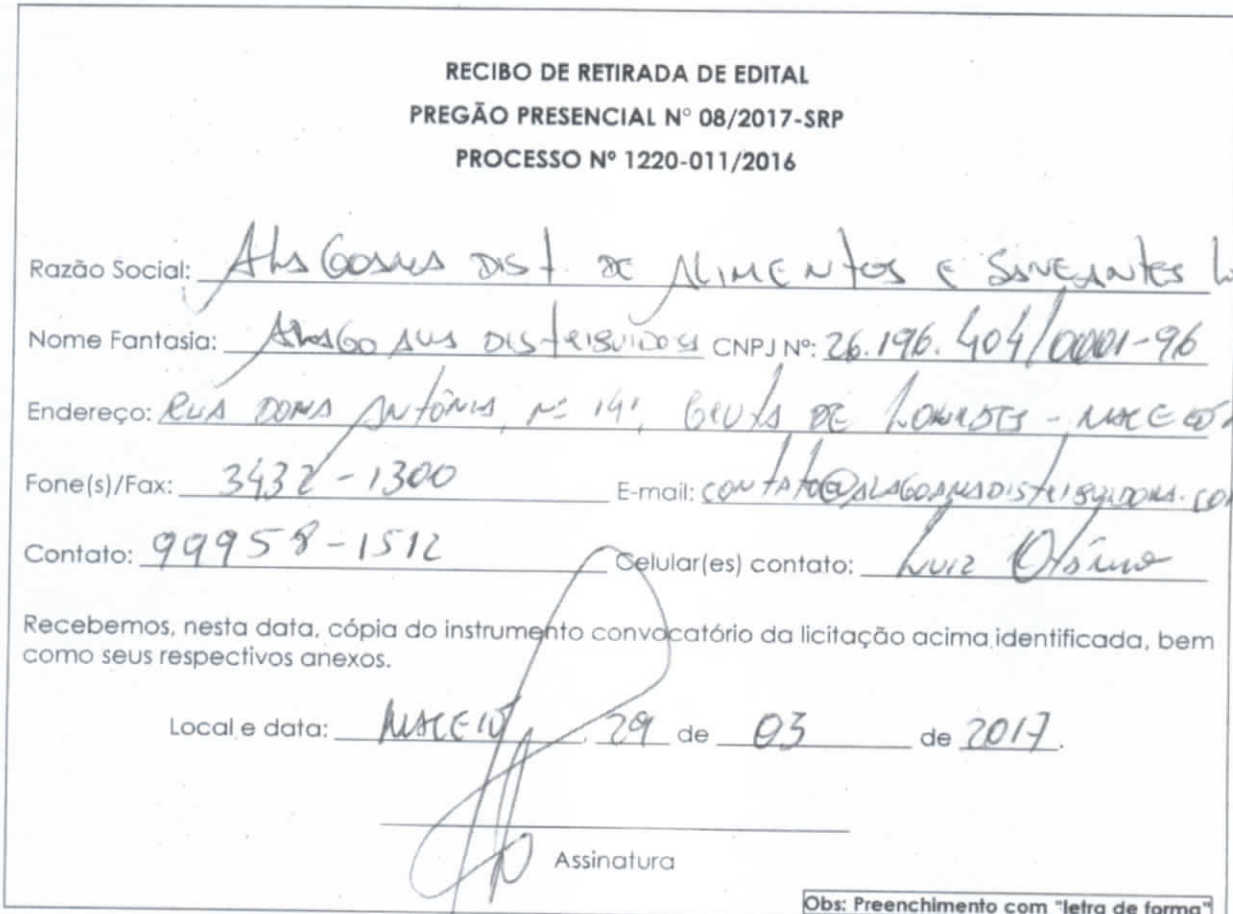 RECIBO DE RETIRADA DE EDITAL
PREGÃO PRESENCIAL Nº 08/2017-SRP
PROCESSO Nº 1220-011/2016
Razão Social: Alagoana Dist. de Alimentos e Saneantes
Nome Fantasia: Alagoana Distribuidora CNPJ Nº: 26.196.404/0001-96
Endereço: Rua Dona Antônia, nº 141, Gruta de Lourdes - Maceió
Fone(s)/Fax: 3432-1300 E-mail: contato@alagoanadistribuidora.com
Contato: 99958-1512 Celular(es) contato: Luiz Otávio
Recebemos, nesta data, cópia do instrumento convocatório da licitação acima identificada, bem
como seus respectivos anexos.
Local e data: Maceió, 29 de 03 de 2017.
Assinatura
Obs: Preenchimento com "letra de forma"